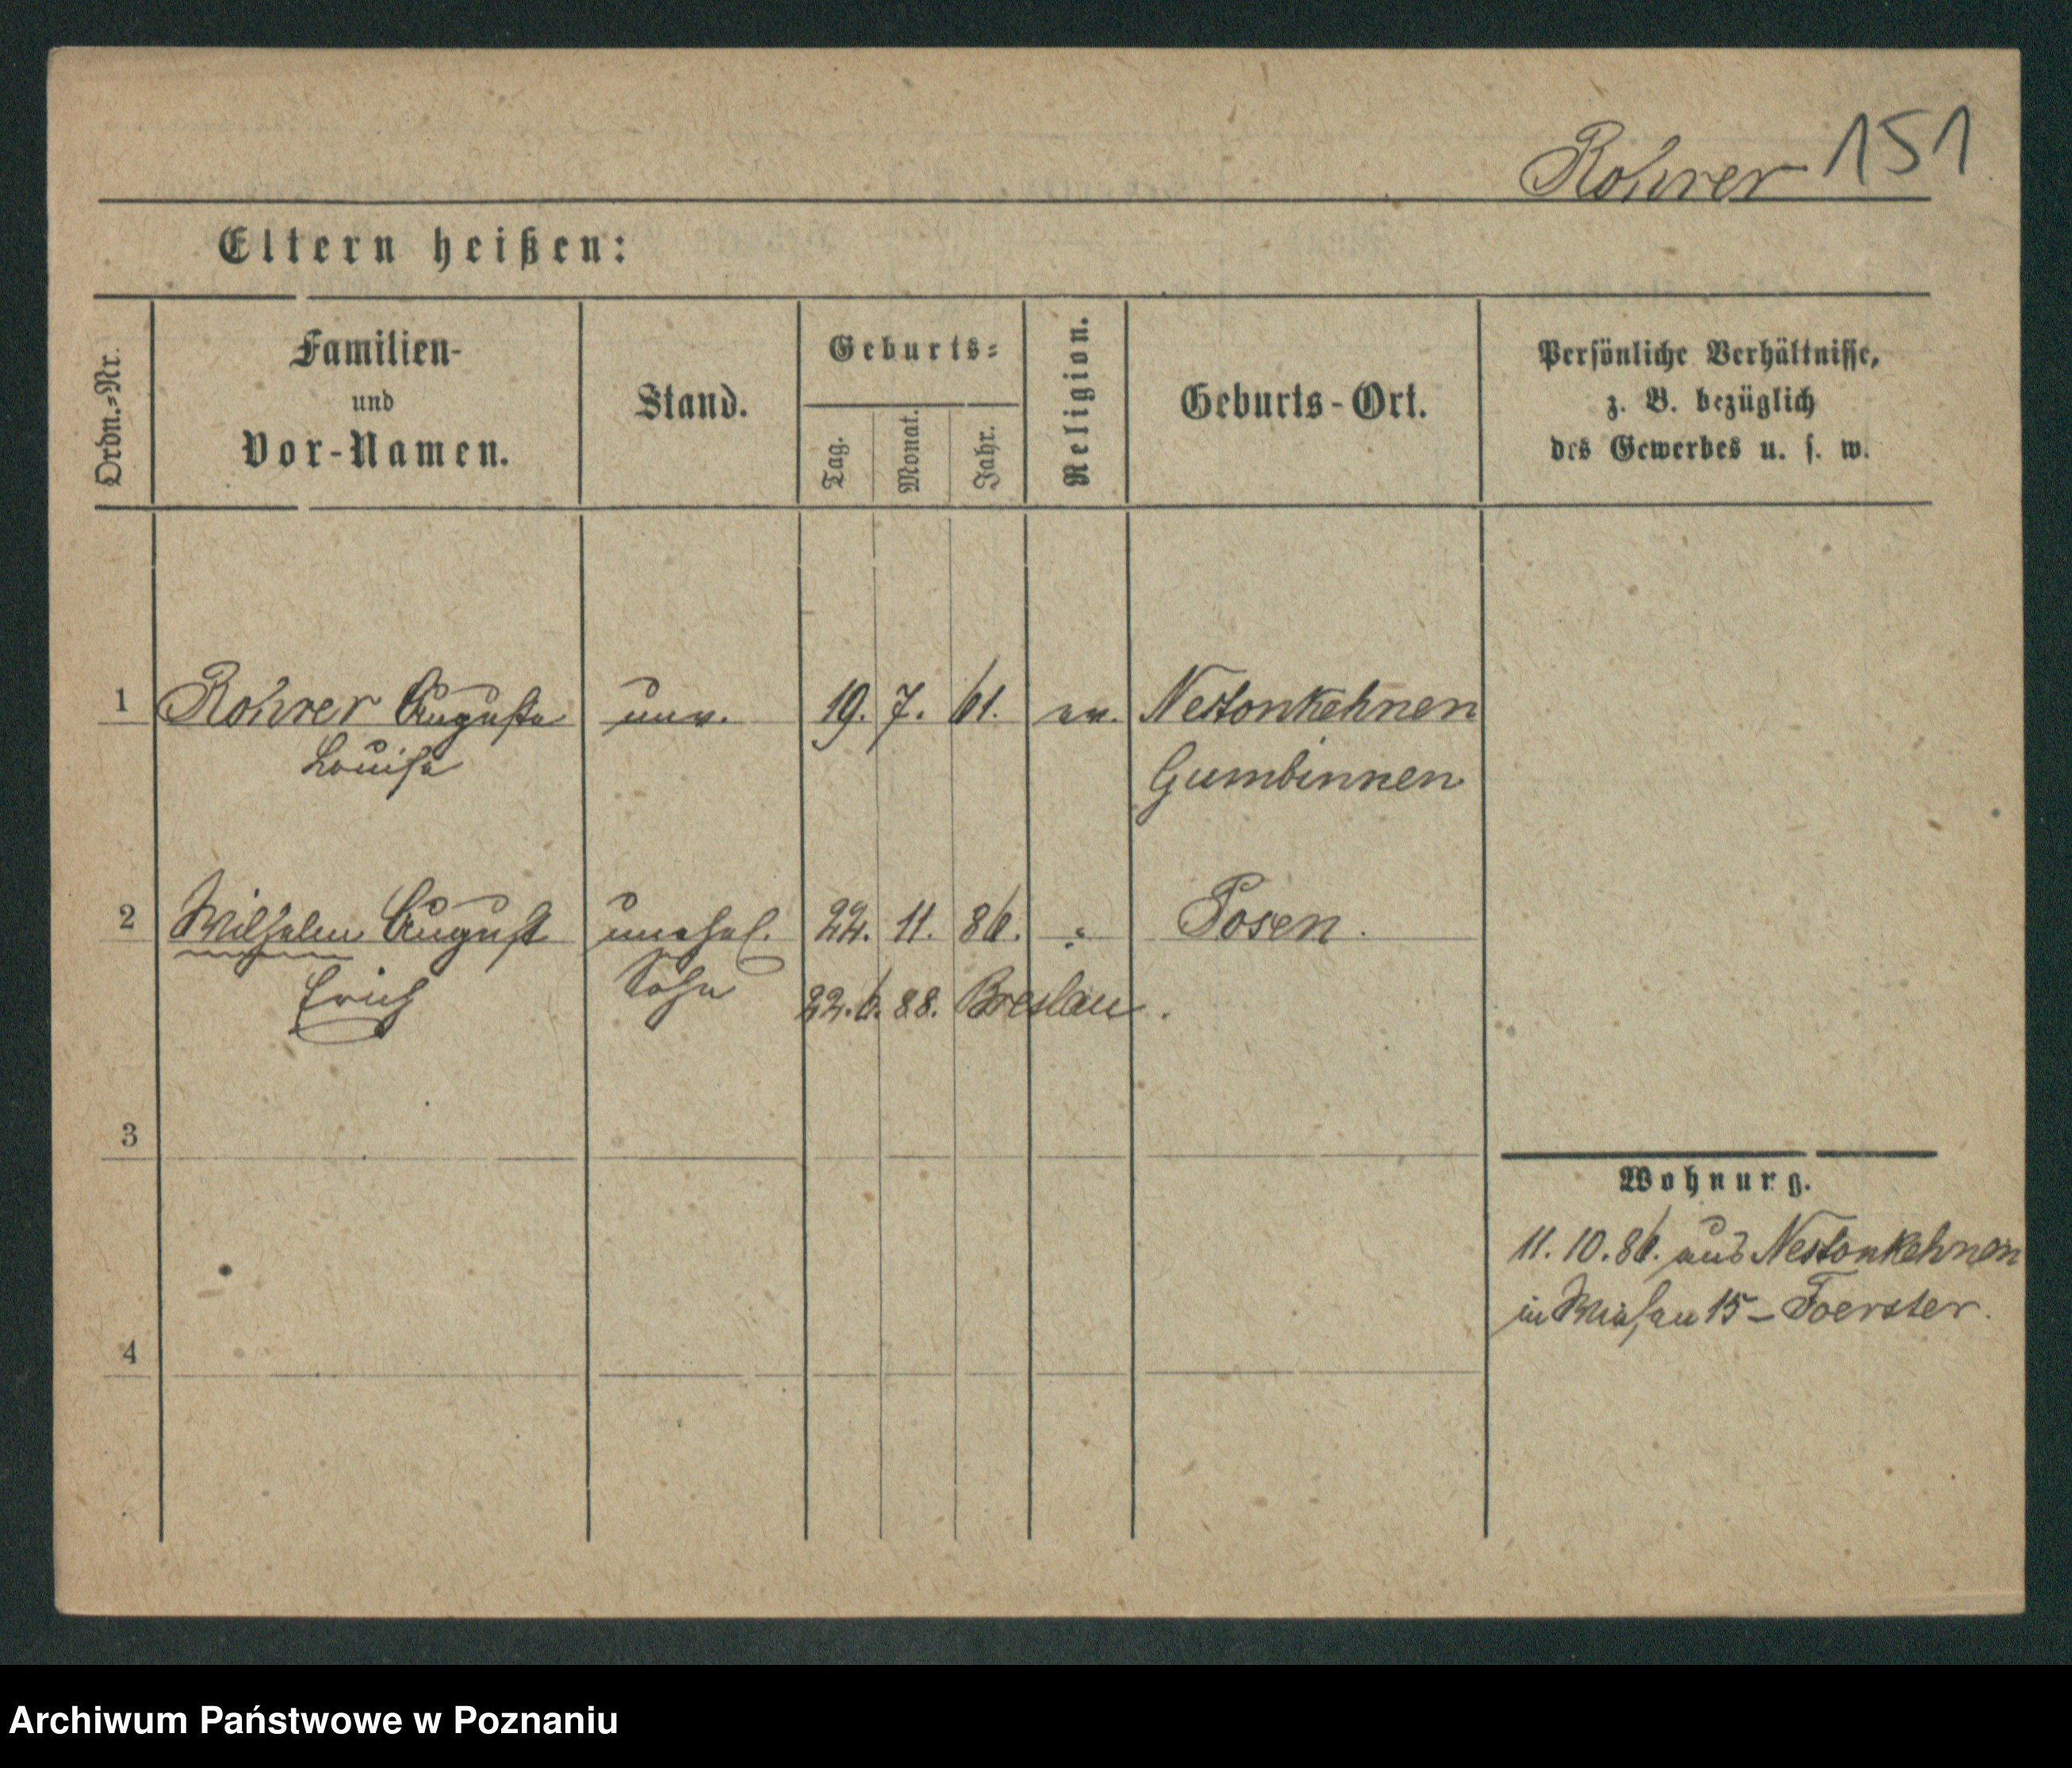 Rohrer 151
Eltern heißen:
Ordn.=Nr.
Familien-
und
Vor-Namen.
Stand.
Geburts=
Tag.
Monat.
Jahr.
Religion.
Geburts-Ort.
Persönliche Verhältnisse,
z. B. bezüglich
des Gewerbes u. s. w.
1 Rohrer Auguste unv. 19. 7. 61. ev. Nestonkehnen
Louise Gumbinnen
2 Wilhelm August unehel. 22. 11. 86. " Posen.
Erich Sohn 22. 6. 88. Breslau.
3
Wohnung.
11. 10. 86. aus Nestonkehnen
in 15 – Foerster.
4
Archiwum Państwowe w Poznaniu